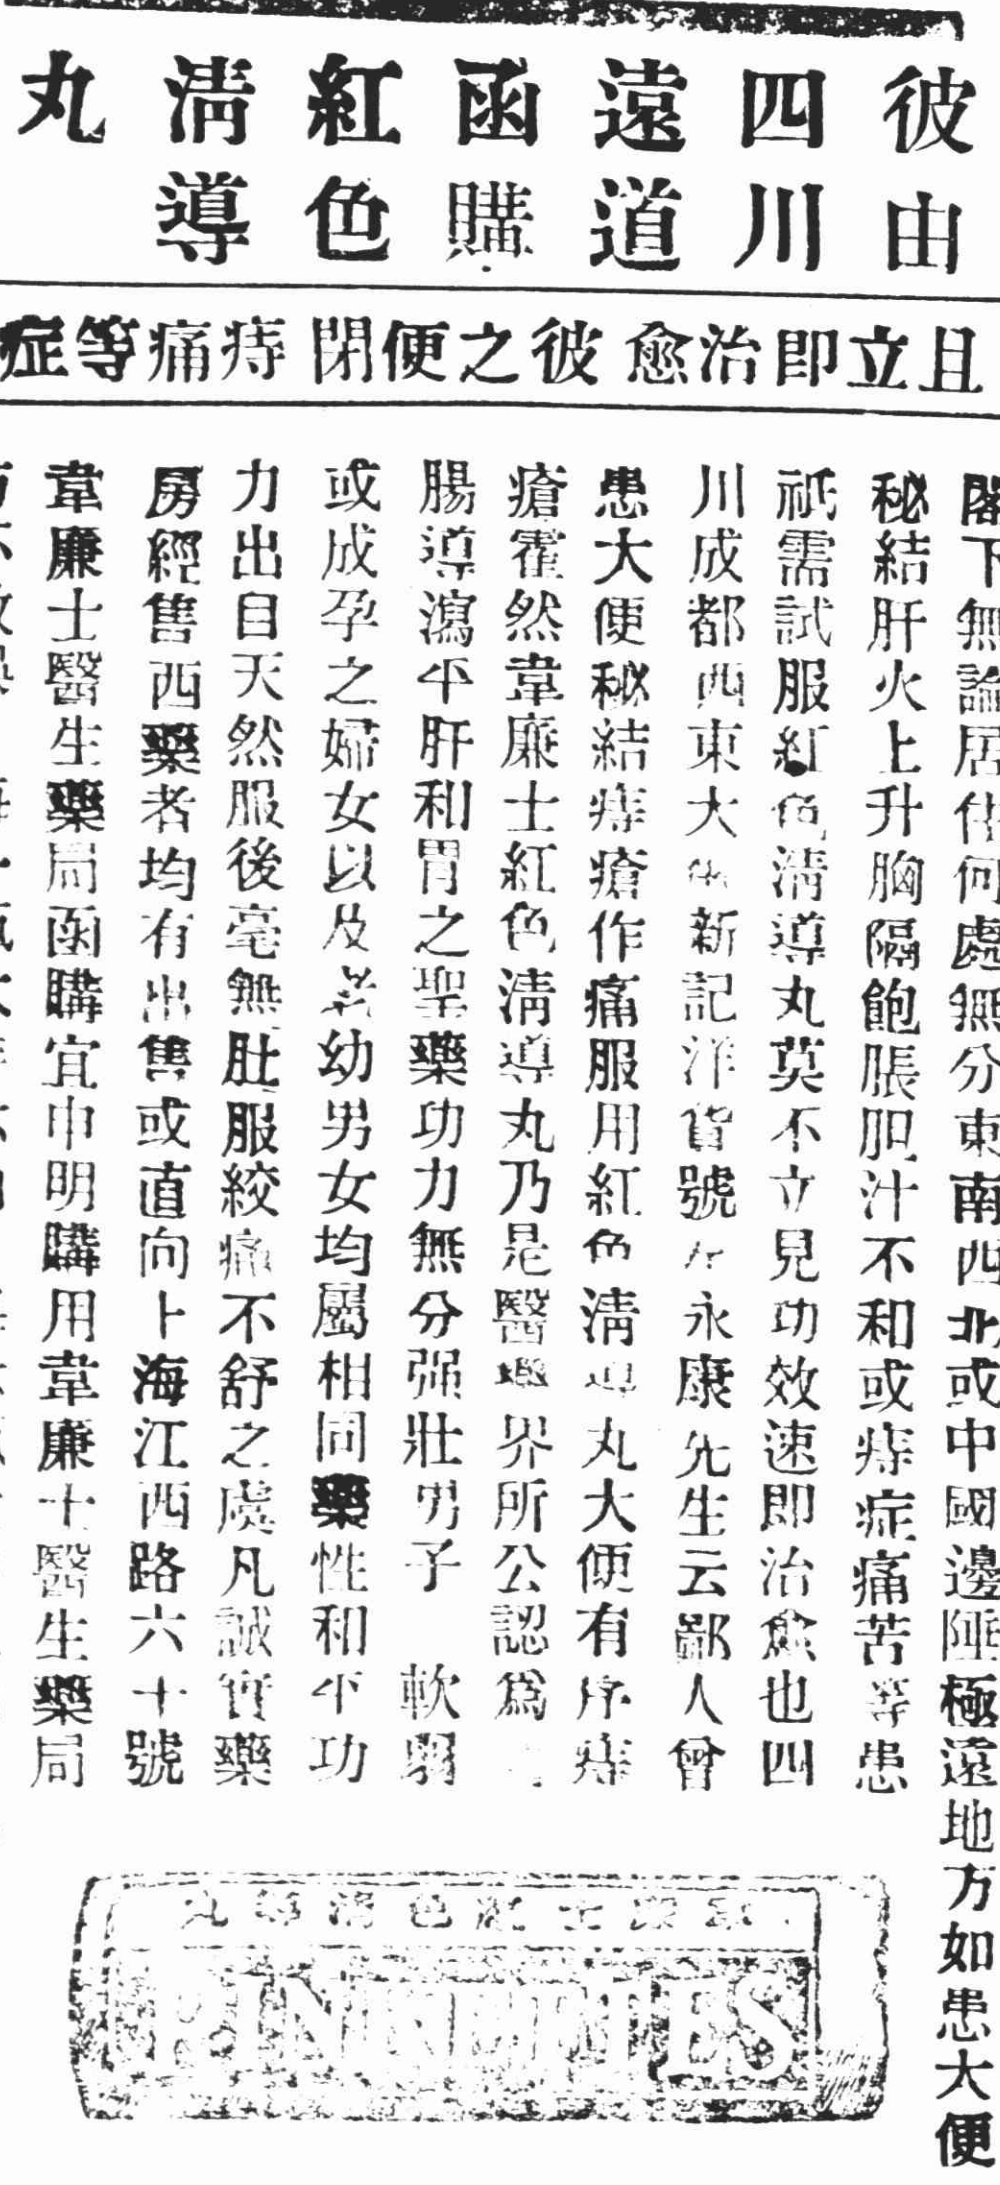 彼由
四川
遠道
函購
紅色
清導
丸
且立即治愈彼之便閉痔痛等症
閣下無論居住何處無分東南西北或中國邊陲極遠地方如患大便
秘結肝火上升胸隔飽脹胆汁不和或痔症痛苦等患
祇需試服紅色清導丸莫不立見功效速即治愈也四
川成都西東大街新記洋貨號 永康先生云鄙人曾
患大便秘結痔瘡作痛服用紅色清導丸大便有序痔
瘡霍然韋廉士紅色清導丸乃是醫藥界所公認爲
腸導瀉平肝和胃之聖藥功力無分强壯男子 軟弱
或成孕之婦女以及老幼男女均屬相同藥性和平功
力出自天然服後毫無肚服絞痛不舒之處凡誠實藥
房經售西藥者均有出售或直向上海江西路六十號
韋廉士醫生藥局函購宜申明購用韋廉士醫生藥局
丸導清色紅士廉韋
PINKETTES